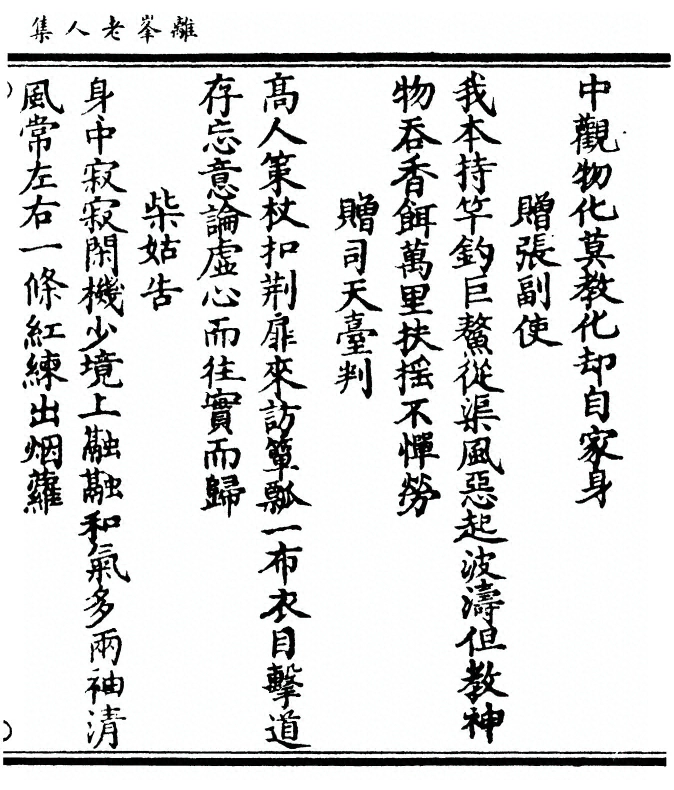 離峯老人集
中觀物化莫教化却自家身
贈張副使
我本持竿釣巨鰲從渠風惡起波濤但教神
物吞香餌萬里扶搖不憚勞
贈司天臺判
高人策杖扣荆扉來訪簞瓢一布衣目擊道
存忘意論虛心而往實而歸
柴姑告
身中寂寂閑機少境上融融和氣多兩袖清
風常左右一條紅練出烟蘿